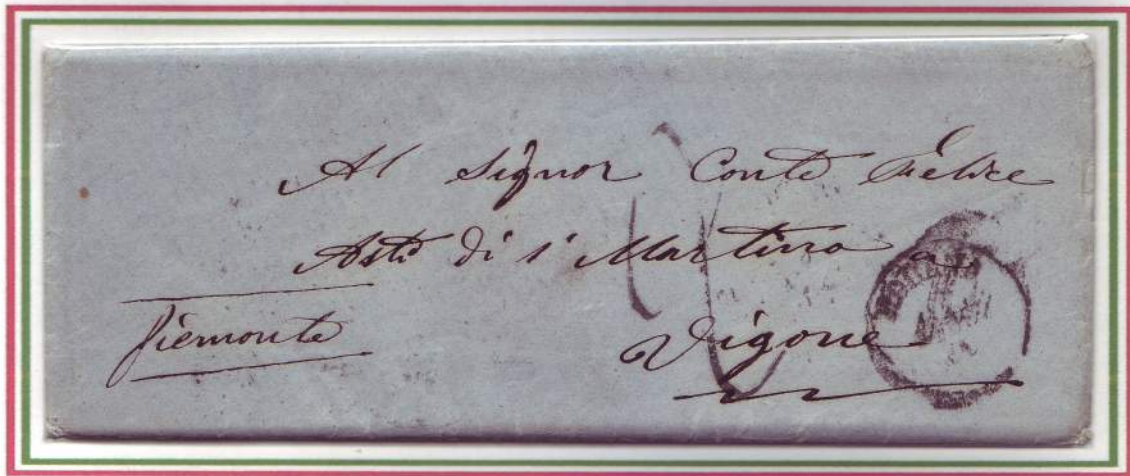 Al Signor Conte Felice
Asti di S. Martino a
Vigone
Piemonte